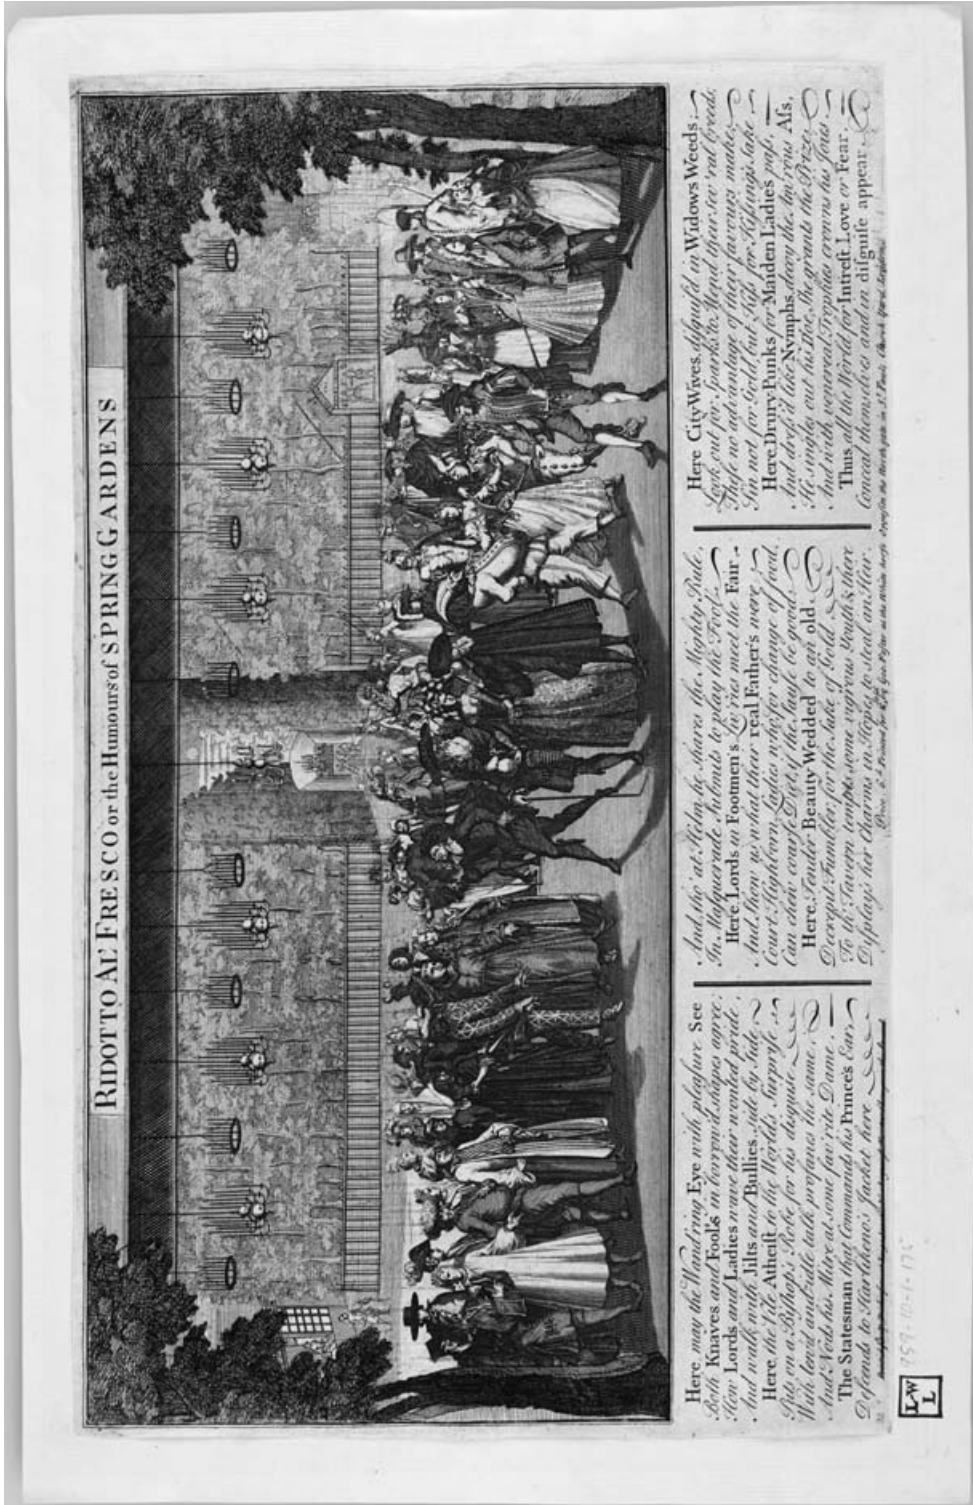 RIDOTTO AL' FRESCO or the Humours of SPRING GARDENS
Here, may the Wand'ring Eye with pleasure See
Both Knaves and Fools in borrow'd shapes agree;
How Lords and Ladies wave their wonted pride,
And walk with Jilts and Bullies, side by Side,
Here the Vile Atheist, to the World's Surprise
Puts on a Bishop's Robe for his disguise
With lewd and idle talk profanes the same,
And Nods his Mitre at some fav'rite Dame.
The Statesman that Commands his Prince's Ear,
Descends to Harlikeno's Jacket here
And, tho' at Helm, he shares the Mighty Rule,
In Masquerade, submits to play the Fool,
Here Lords in Footmen's Liv'ries meet the Fair
And, show us what their real Father's were,
Court Highborn Ladies, who for change of food,
Can chew coarse Diet, if the sause be good
Here, Tender Beauty Wedded to an old
Decrepit Fumbler, for the Sake of Gold
To th' Tavern tempts some vig'rous Youth, & there
Display's her Charms in Hopes to steal an Heir.
Here City Wives, disguis'd in Widows Weeds
Look out for Sparks to Mend their sev'ral breeds,
These no advantage of their favours make,
Sin not for Gold, but Kiss for Kissing's sake
Here Drury Punks for Maiden Ladies pass,
And dress'd like Nymphs, decoy the Am'rous Ass,
He singles out his Doe, she grants the Prize
And with venereal Trophies crowns his Joys
Thus, all the World, for Int'rest Love or Fear,
Conceal themselves and in disguise appear
Price 6.d Printed for
at the White Horse
in St. Pauls Church Yard London
LWL
959-10-1-175